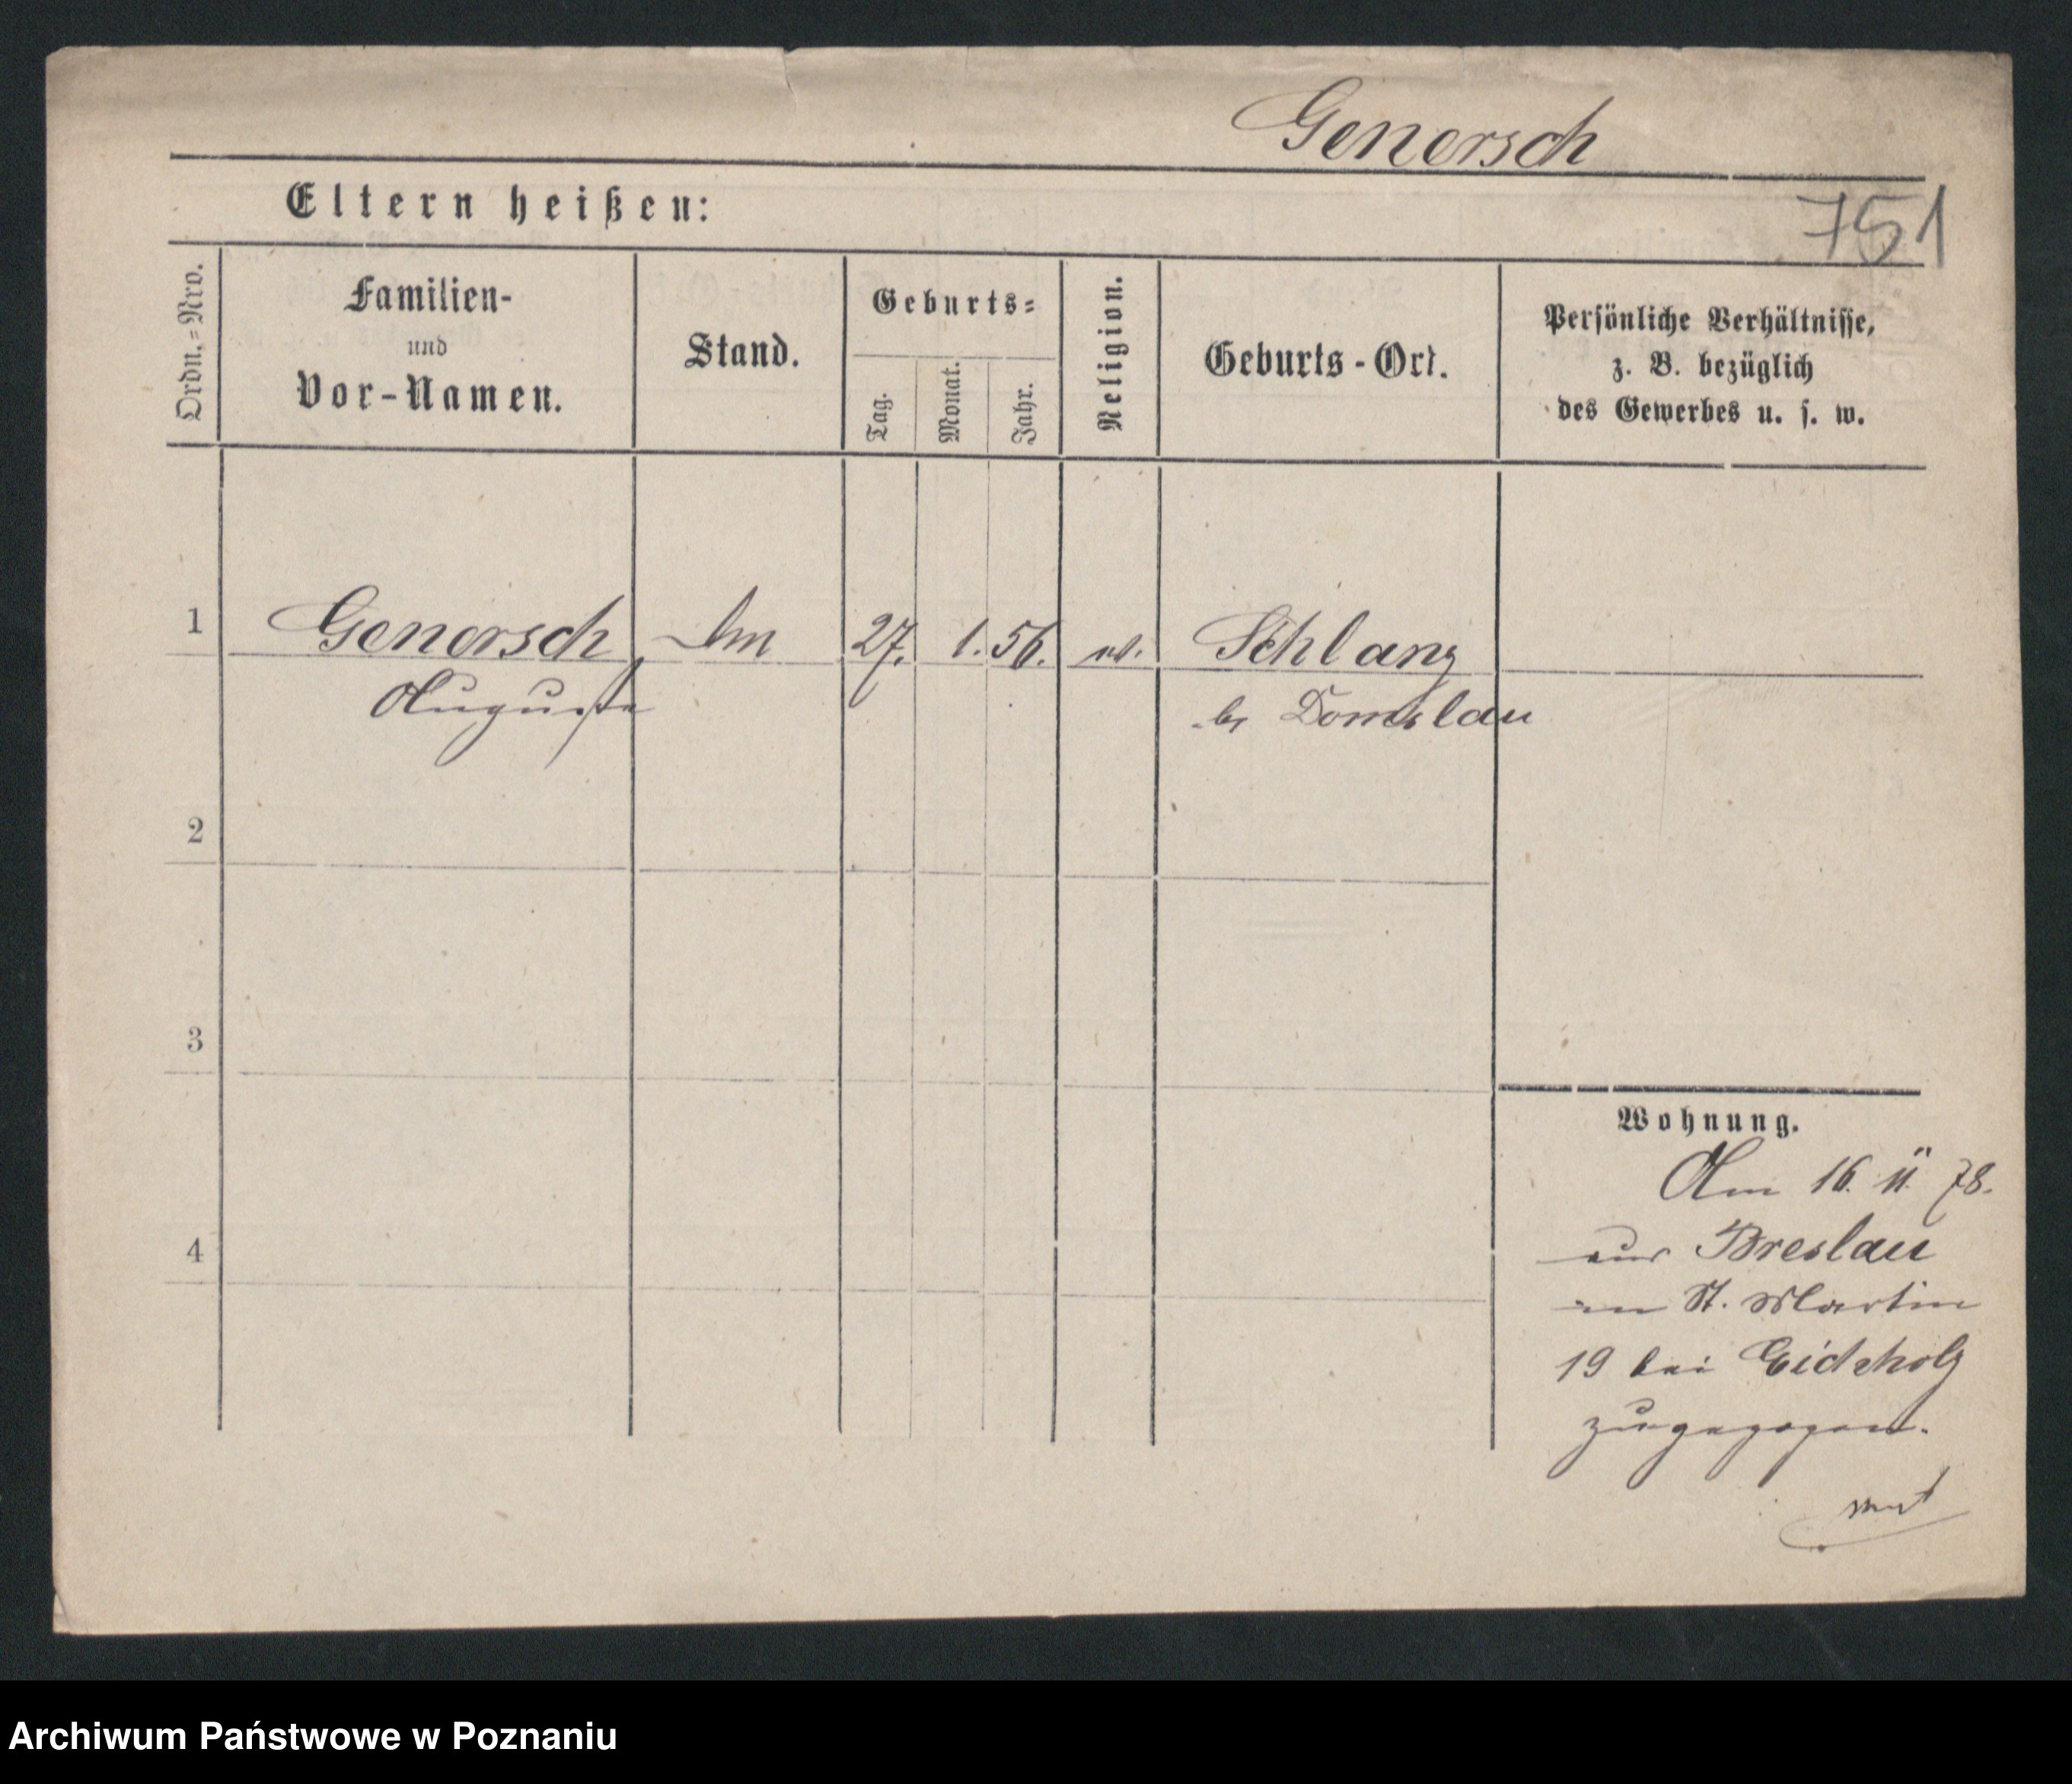 Genersch
751
Eltern heißen:
Ordn.=Nro.
Familien-
und
Vor-Namen.
Stand.
Geburts=
Tag.
Monat.
Jahr.
Religion.
Geburts-Ort.
Persönliche Verhältnisse,
z. B. bezüglich
des Gewerbes u. s. w.
1
Genersch
27. 1. 56.
Schlanz
Auguste
Domslau
2
3
4
Wohnung.
Am 16. 11. 78.
aus Breslau
St. Martin
19 bei Eichholz
zugezogen.
Archiwum Państwowe w Poznaniu